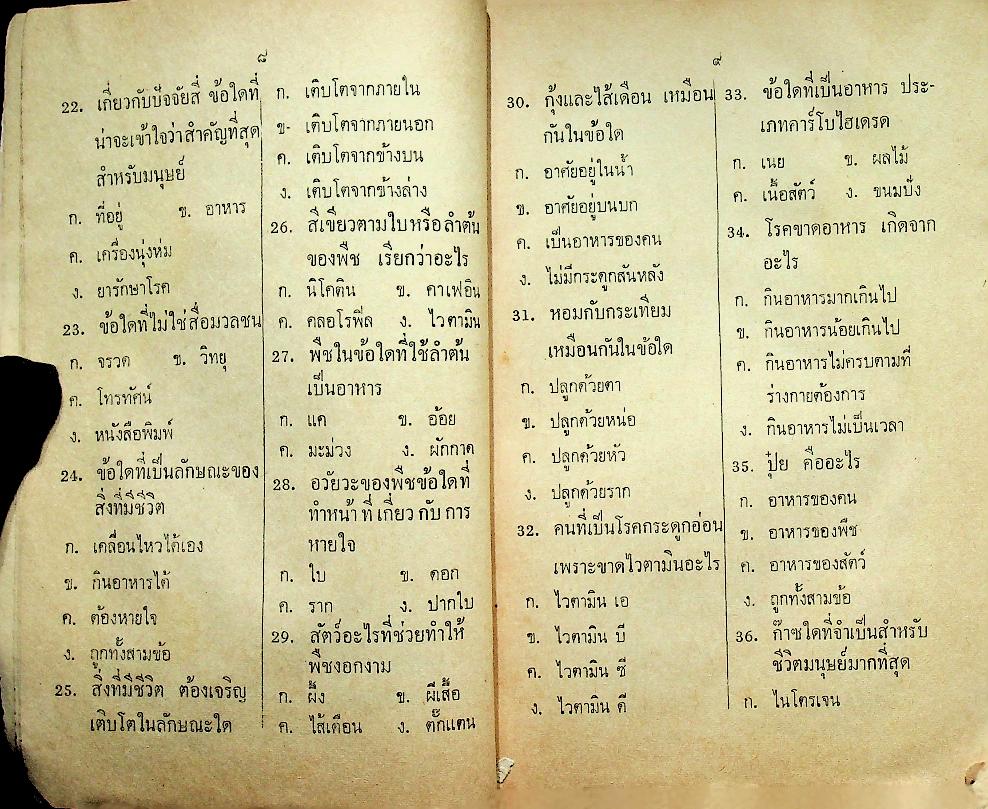 ๘
22. เกี่ยวกับปัจจัยสี่ ข้อใดที่
น่าจะเข้าใจว่าสำคัญที่สุด
สำหรับมนุษย์
ก. ที่อยู่ ข. อาหาร
ค. เครื่องนุ่งห่ม
ง. ยารักษาโรค
23. ข้อใดที่ไม่ใช่สื่อมวลชน
ก. จรวด ข. วิทยุ
ค. โทรทัศน์
ง. หนังสือพิมพ์
24. ข้อใดที่เป็นลักษณะของ
สิ่งที่มีชีวิต
ก. เคลื่อนไหวได้เอง
ข. กินอาหารได้
ค. ต้องหายใจ
ง. ถูกทั้งสามข้อ
25. สิ่งที่มีชีวิต ต้องเจริญ
เติบโตในลักษณะใด
ก. เติบโตจากภายใน
ข- เติบโตจากภายนอก
ค. เติบโตจากข้างบน
ง. เติบโตจากข้างล่าง
26. สีเขียวตามใบหรือลำต้น
ของพืช เรียกว่าอะไร
ก. นิโคติน ข. คาเฟอิน
ค. คลอโรฟีล ง. ไวตามิน
27. พืชในข้อใดที่ใช้ลำต้น
เป็นอาหาร
ก. แค ข. อ้อย
ค. มะม่วง ง. ผักกาด
28. อวัยวะของพืชข้อใดที่
ทำหน้า ที่ เกี่ยว กับ การ
หายใจ
ก. ใบ ข. ดอก
ค. ราก ง. ปากใบ
29. สัตว์อะไรที่ช่วยทำให้
พืชงอกงาม
ก. ผึ้ง ข. ผีเสื้อ
ค. ไส้เดือน ง. ตั๊กแตน
๙
30. กุ้งและไส้เดือน เหมือน
กันในข้อใด
ก. อาศัยอยู่ในน้ำ
ข. อาศัยอยู่บนบก
ค. เป็นอาหารของคน
ง. ไม่มีกระดูกสันหลัง
31. หอมกับกระเทียม
เหมือนกันในข้อใด
ก. ปลูกด้วยตา
ข. ปลูกด้วยหน่อ
ค. ปลูกด้วยหัว
ง. ปลูกด้วยราก
32. คนที่เป็นโรคกระดูกอ่อน
เพราะขาดไวตามินอะไร
ก. ไวตามิน เอ
ข. ไวตามิน บี
ค. ไวตามิน ซี
ง. ไวตามิน ดี
33. ข้อใดที่เป็นอาหาร ประ-
เภทคาร์โบไฮเดรด
ก. เนย ข. ผลไม้
ค. เนื้อสัตว์ ง. ขนมปัง
34. โรคขาดอาหาร เกิดจาก
อะไร
ก. กินอาหารมากเกินไป
ข. กินอาหารน้อยเกินไป
ค. กินอาหารไม่ครบตามที่
ร่างกายต้องการ
ง. กินอาหารไม่เป็นเวลา
35. ปุ๋ย คืออะไร
ก. อาหารของคน
ข. อาหารของพืช
ค. อาหารของสัตว์
ง. ถูกทั้งสามข้อ
36. ก๊าซใดที่จำเป็นสำหรับ
ชีวิตมนุษย์มากที่สุด
ก. ไนโตรเจน